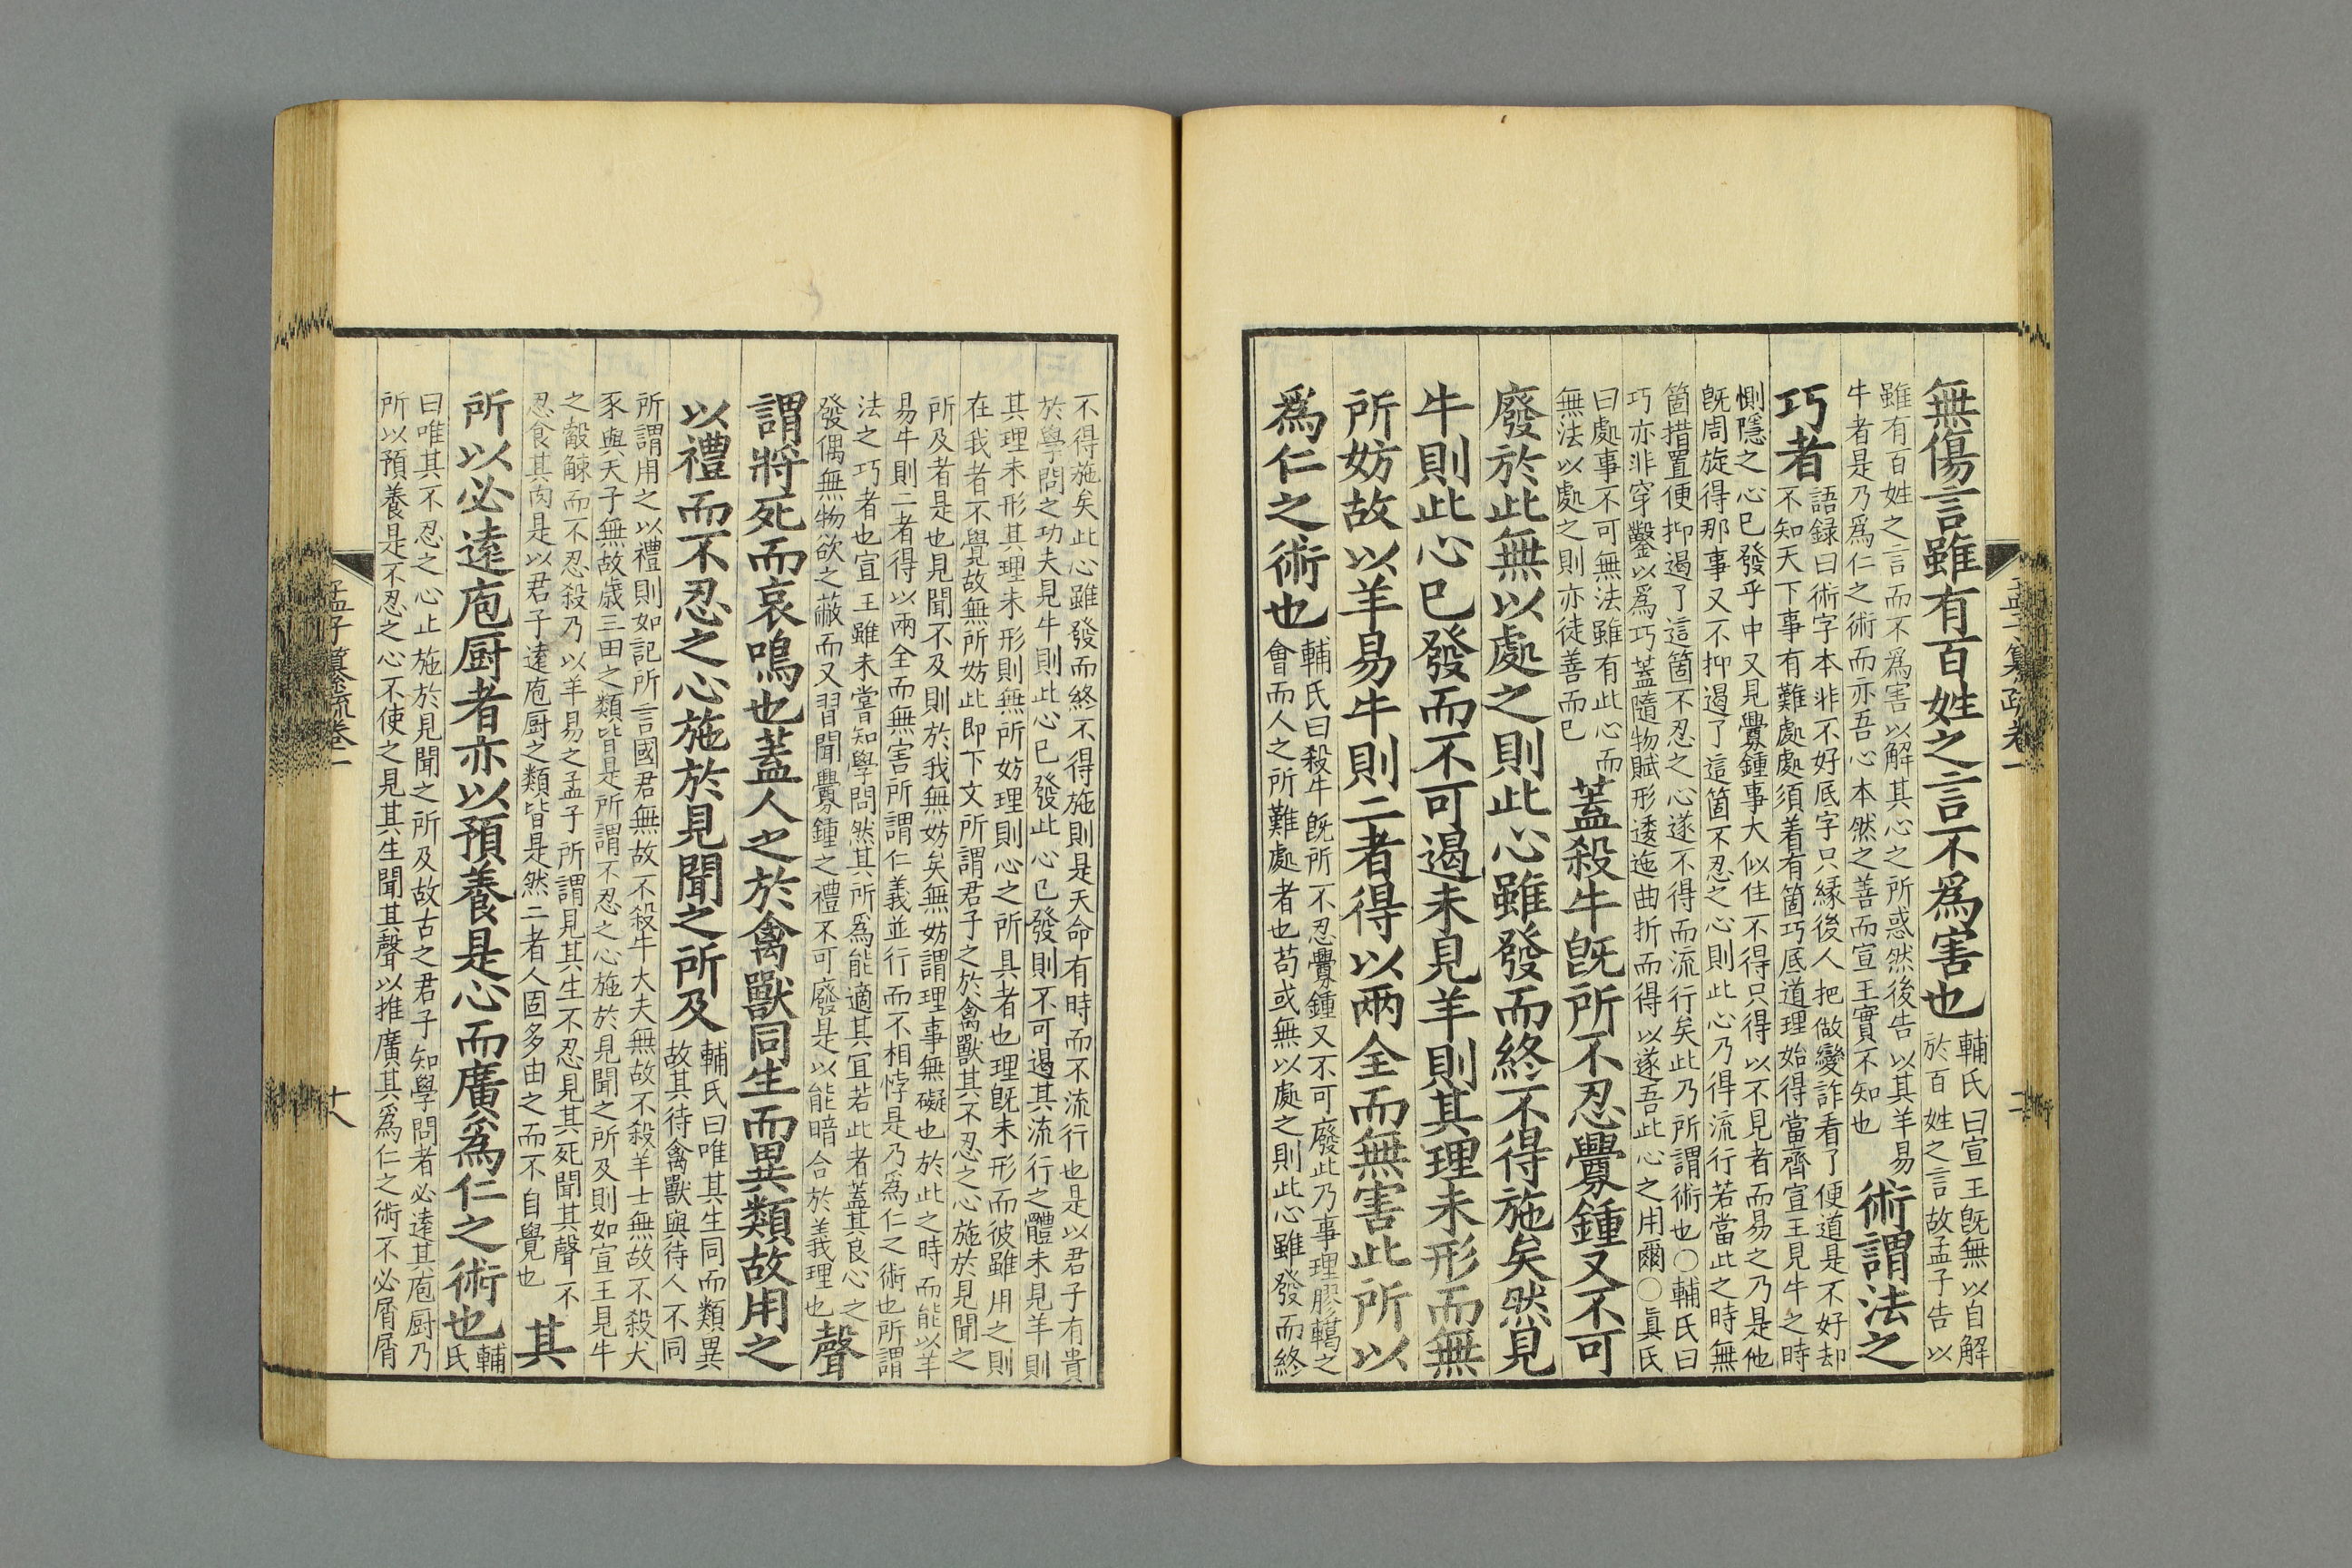 無傷言雖有百姓之言不為害也
輔氏曰宣王旣無以自解
於百姓之言故孟子告以
雖有百姓之言而不為害以解其心之所惑然後告以其羊易
牛者是乃爲仁之術而亦吾心本然之善而宣王實不知也
術謂法之
巧者
語録曰術字本非不好底字只緣後人把做變詐看了便道是不好却
不知天下事有難處處須着有箇巧底道理始得當齊宣王見牛之時
惻隱之心已發乎中又見釁鍾事大似住不得只得以不見者而易之乃是他
旣周旋得那事又不抑遏了這箇不忍之心則此心乃得流行若當此之時無
箇措置便抑遏了這箇不忍之心遂不得而流行矣此乃所謂術也○輔氏曰
巧亦非穿鑿以爲巧蓋隨物賦形逶迤曲折而得以遂吾此心之用爾○眞氏
曰處事不可無法雖有此心而
無法以處之則亦徒善而已
蓋殺牛旣所不忍釁鍾又不可
廢於此無以處之則此心雖發而終不得施矣然見
牛則此心已發而不可遏未見羊則其理未形而無
所妨故以羊易牛則二者得以兩全而無害此所以
爲仁之術也
輔氏曰殺牛旣所不忍釁鍾又不可廢此乃事理膠轕之
會而人之所難處者也苟或無以處之則此心雖發而終
孟子纂疏卷一
不得施矣此心雖發而終不得施則是天命有時而不流行也是以君子有貴
於學問之功夫見牛則此心已發此心已發則不可遏其流行之體未見羊則
其理未形其理未形則無所妨理則心之所具者也理旣未形而彼雖用之則
在我者不覺故無所妨此即下文所謂君子之於禽獸其不忍之心施於見聞之
所及者是也見聞不及則於我無妨矣無妨謂理事無礙也於此之時而能以羊
易牛則二者得以兩全而無害所謂仁義並行而不相悖是乃爲仁之術也所謂
法之巧者也宣王雖未嘗知學問然其所爲能適其宜若此者蓋其良心之
發偶無物欲之蔽而又習聞釁鍾之禮不可廢是以能暗合於義理也
聲
謂將死而哀鳴也蓋人之於禽獸同生而異類故用之
以禮而不忍之心施於見聞之所及
輔氏曰唯其生同而類異
故其待禽獸與待人不同
所謂用之以禮則如記所言國君無故不殺牛大夫無故不殺羊士無故不殺犬
豕與天子無故歲三田之類皆是所謂不忍之心施於見聞之所及則如宣王見牛
之觳觫而不忍殺乃以羊易之孟子所謂見其生不忍見其死聞其聲不
忍食其肉是以君子遠庖厨之類皆是然二者人固多由之而不自覺也
其
所以必遠庖厨者亦以預養是心而廣爲仁之術也
輔
氏
曰唯其不忍之心止施於見聞之所及故古之君子知學問者必遠其庖厨乃
所以預養是不忍之心不使之見其生聞其聲以推廣其爲仁之術不必屑屑
孟子纂疏卷一
十八